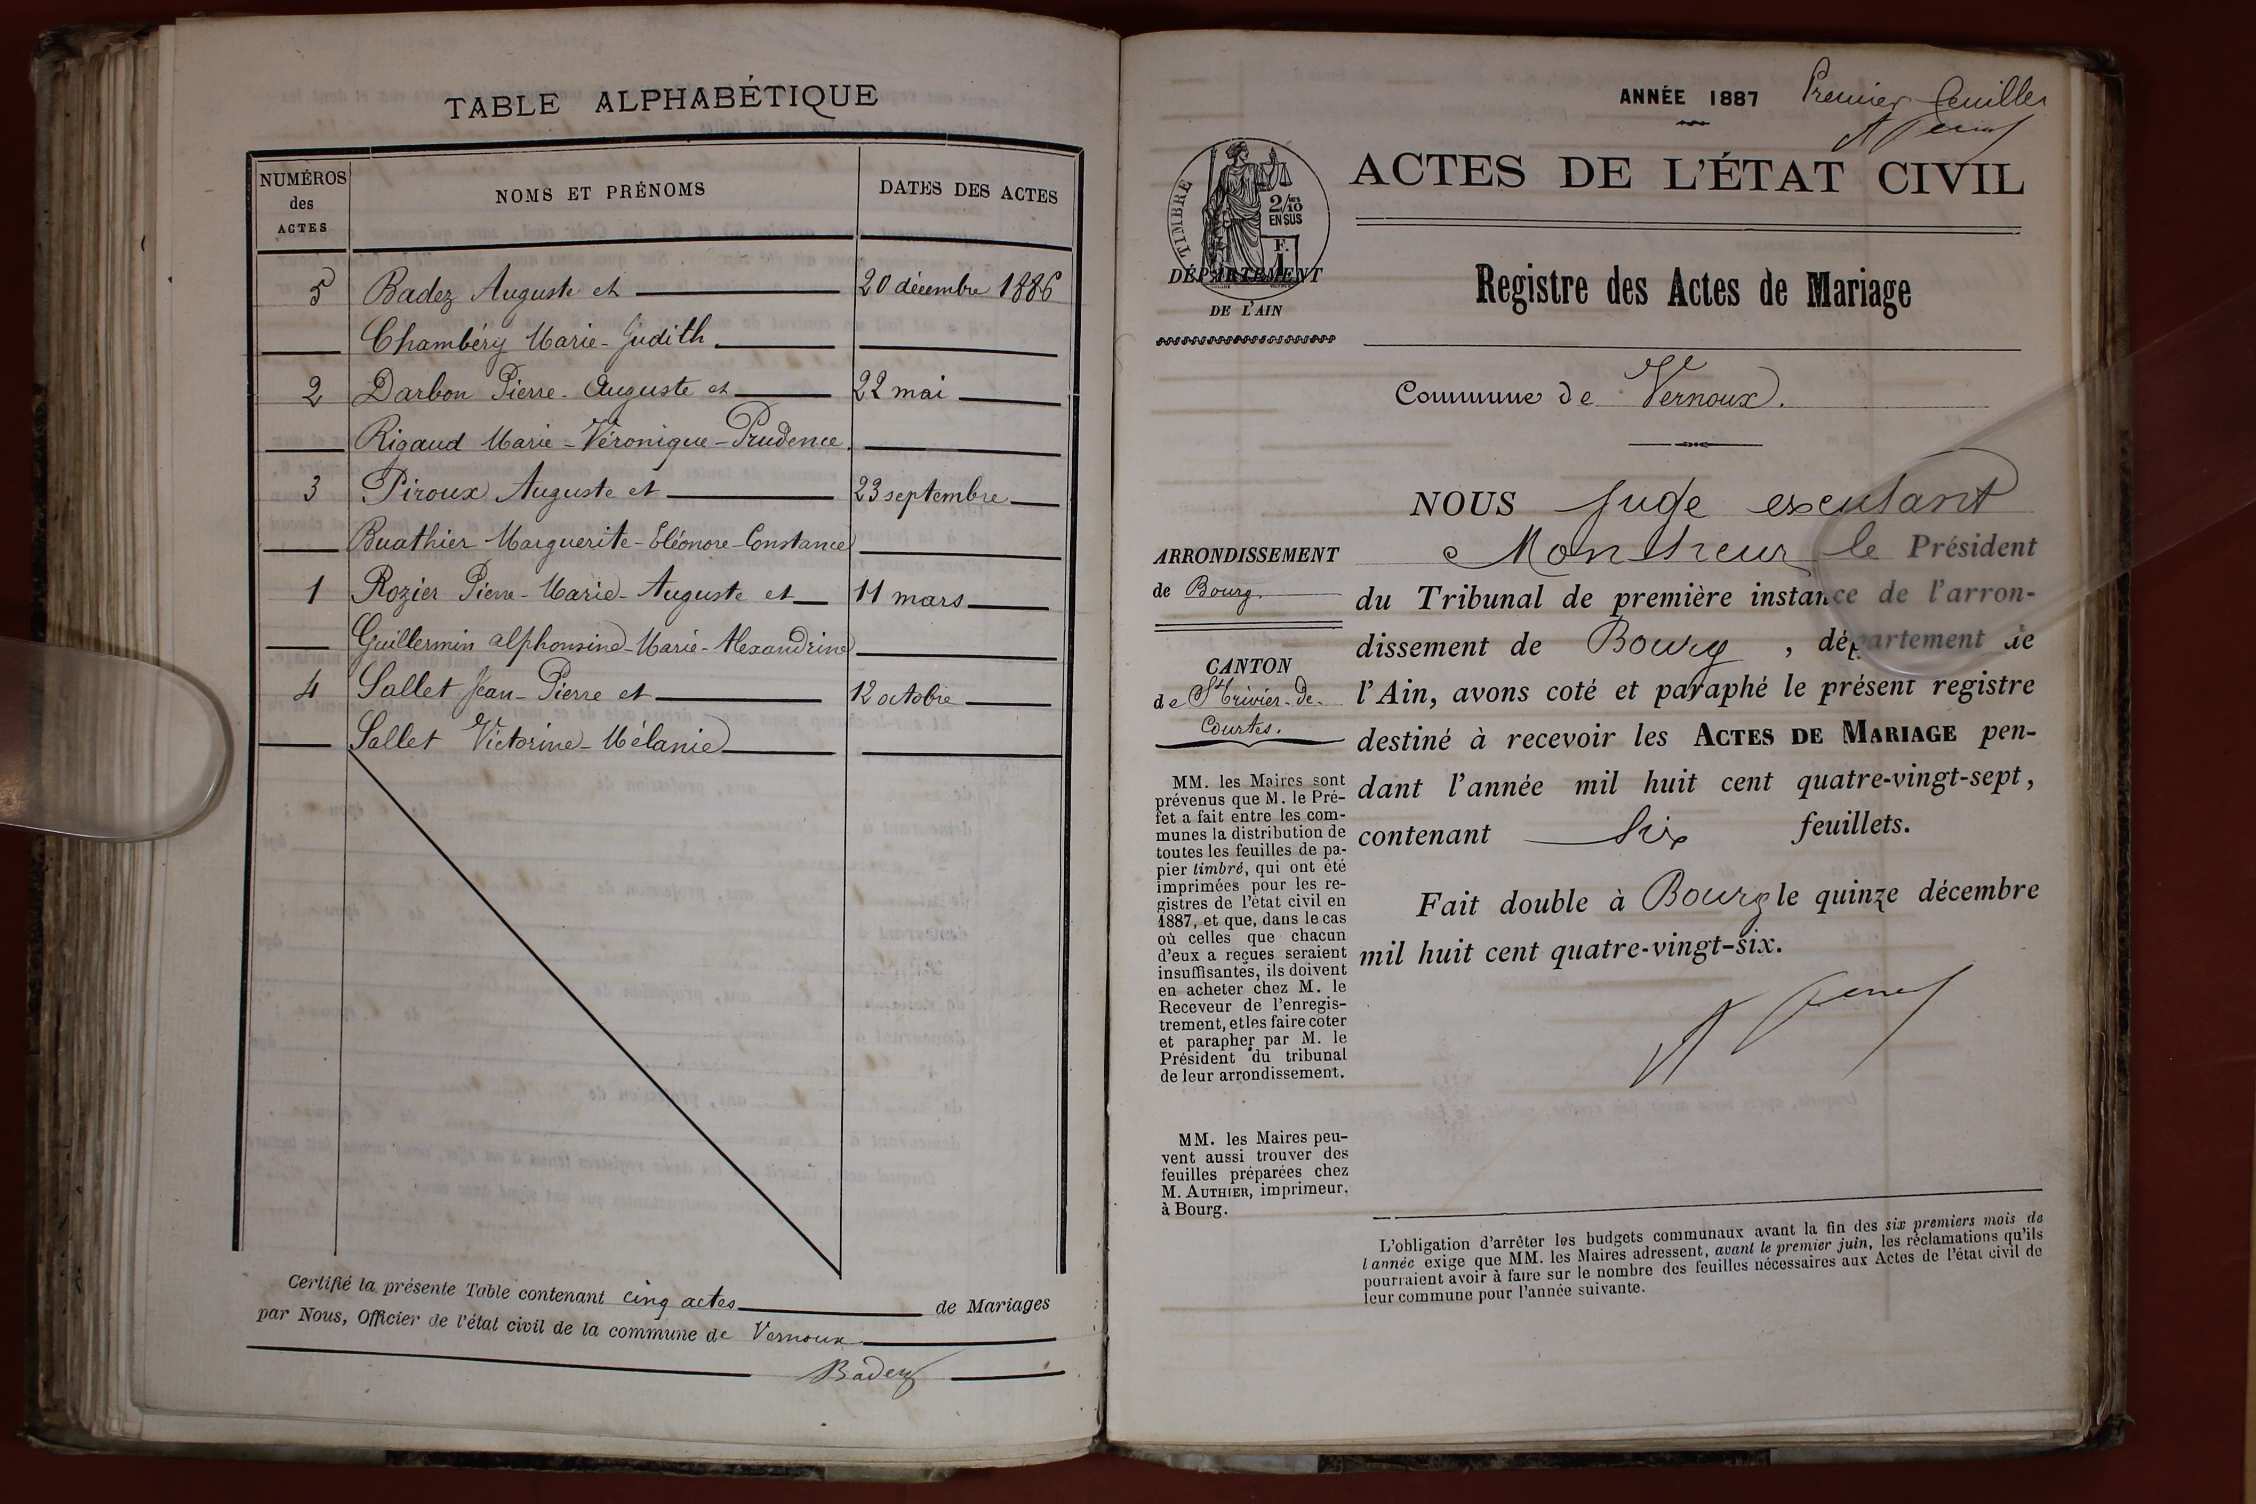 TABLE ALPHABÉTIQUE
NUMÉROS des ACTES
NOMS ET PRÉNOMS
DATES DES ACTES
5 Badez Auguste et 20 décembre 1886
Chambéry Marie-Judith
2 Darbon Pierre-Auguste et 22 mai
Rigaud Marie-Véronique-Prudence.
3 Piroux Auguste et 23 septembre
Buathier Marguerite-Eléonore-Constance
1 Rozier Pierre-Marie-Auguste et 11 mars
Guillermin Alphonsine-Marie-Alexandrine
4 Sallet Jean-Pierre et 12 octobre
Sallet Victorine-Mélanie
Certifié la présente Table contenant cinq actes de Mariages
par Nous, Officier de l'état civil de la commune de Vernoux
Badez
ANNÉE 1887 Premier feuillet
ACTES DE L'ÉTAT CIVIL
TIMBRE
2/10
EN SUS
F.
1
DÉPARTEMENT
DE L'AIN
Registre des Actes de Mariage
Commune de Vernoux.
ARRONDISSEMENT
de Bourg.
CANTON
de St Trivier-de-
Courtes.
MM. les Maires sont
prévenus que M. le Pré-
fet a fait entre les com-
munes la distribution de
toutes les feuilles de pa-
pier timbré, qui ont été
imprimées pour les re-
gistres de l'état civil en
1887, et que, dans le cas
où celles que chacun
d'eux a reçues seraient
insuffisantes, ils doivent
en acheter chez M. le
Receveur de l'enregis-
trement, et les faire coter
et parapher par M. le
Président du tribunal
de leur arrondissement.
MM. les Maires peu-
vent aussi trouver des
feuilles préparées chez
M. AUTHIER, imprimeur,
à Bourg.
NOUS Juge exeutant
Monsieur le Président
du Tribunal de première instance de l'arron-
dissement de Bourg, département de
l'Ain, avons coté et paraphé le présent registre
destiné à recevoir les ACTES DE MARIAGE pen-
dant l'année mil huit cent quatre-vingt-sept,
contenant Six feuillets.
Fait double à Bourg le quinze décembre
mil huit cent quatre-vingt-six.
L'obligation d'arrêter les budgets communaux avant la fin des six premiers mois de
l'année exige que MM. les Maires adressent, avant le premier juin, les réclamations qu'ils
pourraient avoir à faire sur le nombre des feuilles nécessaires aux Actes de l'état civil de
leur commune pour l'année suivante.